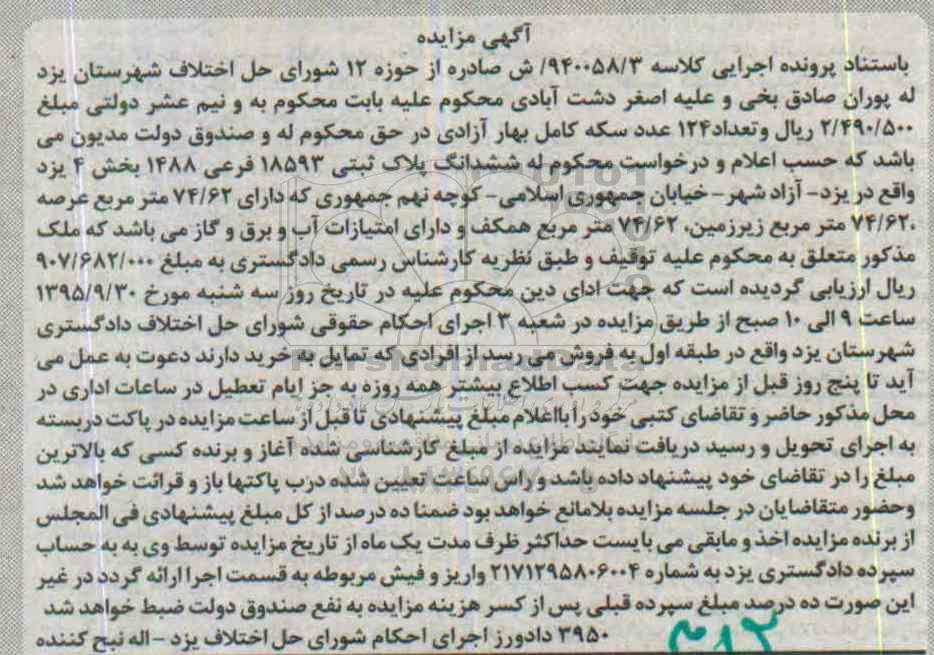 آگهی مزایده
باستناد پرونده اجرایی کلاسه ۹۴۰۰۵۸/۳/ ش صادره از حوزه ۱۲ شورای حل اختلاف شهرستان یزد
له پوران صادق بخی و علیه اصغر دشت آبادی محکوم علیه بابت محکوم به و نیم عشر دولتی مبلغ
۲/۴۹۰/۵۰۰ ریال وتعداد۱۲۴ عدد سکه کامل بهار آزادی در حق محکوم له و صندوق دولت مدیون می
باشد که حسب اعلام و درخواست محکوم له ششدانگ پلاک ثبتی ۱۸۵۹۳ فرعی ۱۴۸۸ بخش ۴ یزد
واقع در یزد- آزاد شهر- خیابان جمهوری اسلامی- کوچه نهم جمهوری که دارای ۷۴/۶۲ متر مربع عرصه
،۷۴/۶۲ متر مربع زیرزمین، ۷۴/۶۲ متر مربع همکف و دارای امتیازات آب و برق و گاز می باشد که ملک
مذکور متعلق به محکوم علیه توقیف و طبق نظریه کارشناس رسمی دادگستری به مبلغ ۹۰۷/۶۸۲/۰۰۰
ریال ارزیابی گردیده است که جهت ادای دین محکوم علیه در تاریخ روز سه شنبه مورخ ۱۳۹۵/۹/۳۰
ساعت ۹ الی ۱۰ صبح از طریق مزایده در شعبه ۳ اجرای احکام حقوقی شورای حل اختلاف دادگستری
شهرستان یزد واقع در طبقه اول به فروش می رسد از افرادی که تمایل به خرید دارند دعوت به عمل می
آید تا پنج روز قبل از مزایده جهت کسب اطلاع بیشتر همه روزه به جز ایام تعطیل در ساعات اداری در
محل مذکور حاضر و تقاضای کتبی خود را بااعلام مبلغ پیشنهادی تا قبل از ساعت مزایده در پاکت دربسته
به اجرای تحویل و رسید دریافت نمایند مزایده از مبلغ کارشناسی شده آغاز و برنده کسی که بالاترین
مبلغ را در تقاضای خود پیشنهاد داده باشد و راس ساعت تعیین شده درب پاکتها باز و قرائت خواهد شد
وحضور متقاضایان در جلسه مزایده بلامانع خواهد بود ضمنا ده درصد از کل مبلغ پیشنهادی فی المجلس
از برنده مزایده اخذ و مابقی می بایست حداکثر ظرف مدت یک ماه از تاریخ مزایده توسط وی به به حساب
سپرده دادگستری یزد به شماره ۲۱۷۱۲۹۵۸۰۶۰۰۴ واریز و فیش مربوطه به قسمت اجرا ارائه گردد در غیر
این صورت ده درصد مبلغ سپرده قبلی پس از کسر هزینه مزایده به نفع صندوق دولت ضبط خواهد شد
۳۹۵۰ دادورز اجرای احکام شورای حل اختلاف یزد - اله نبح کننده